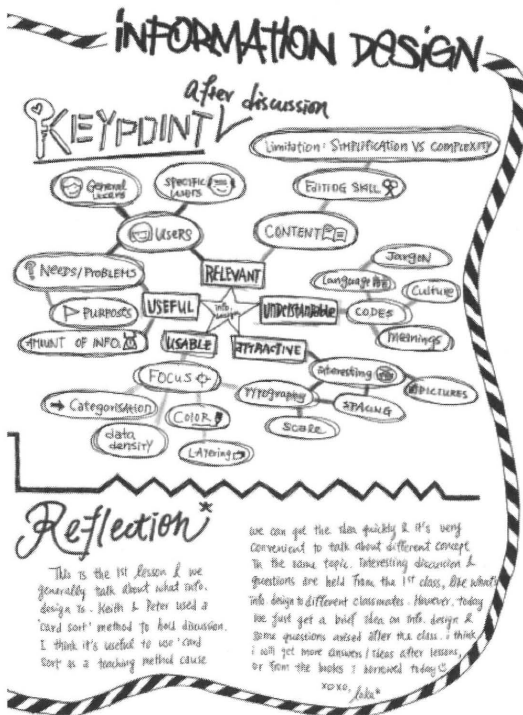 INFORMATION DESIGN
KEYPOINT
after discussion
Limitation: SIMPLIFICATION VS COMPLEXITY
EDITING SKILL
CONTENT
General users
SPECIFIC USERS
USERS
NEEDS/PROBLEMS
PURPOSES
AMOUNT OF INFO.
RELEVANT
USEFUL
info. design
UNDERSTANDABLE
USABLE
ATTRACTIVE
Jargon
Language
Culture
CODES
meanings
Interesting
PICTURES
Typography
SPACING
SCALE
FOCUS
Categorisation
data density
COLOR
LAYERING
Reflection*
This is the 1st lesson & we
generally talk about what info.
design is. Keith & Peter used a
'card sort' method to hold discussion.
I think it's useful to use 'card
sort' as a teaching method cause
we can get the idea quickly & it's very
convenient to talk about different concept
in the same topic. Interesting discussion &
questions are held from the 1st class, like what's
info. design to different classmates. However, today
we just get a brief idea on info. design &
some questions arised after the class. i think
i will get more answers/ideas after lessons,
or from the books i borrowed today
xoxo,